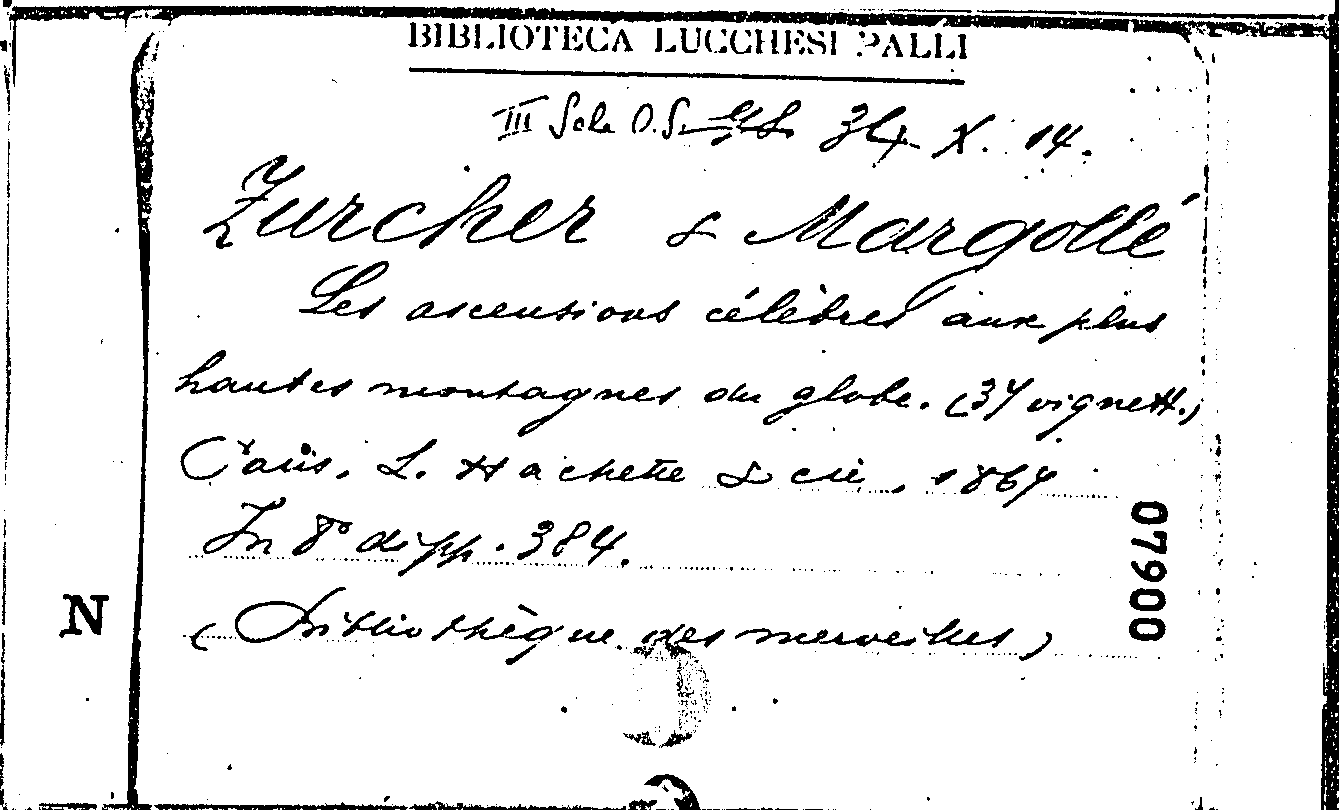 BIBLIOTECA LUCCHESI PALLI
III Sala O.S. 34 X. 14.
Zurcher & Margollé
Les ascensions célèbres aux plus
hautes montagnes du globe. (37 vignett.)
Paris, L. Hachette & cie, 1867
In 8° di pp. 384.
(Bibliothèque des merveilles)
N
07900